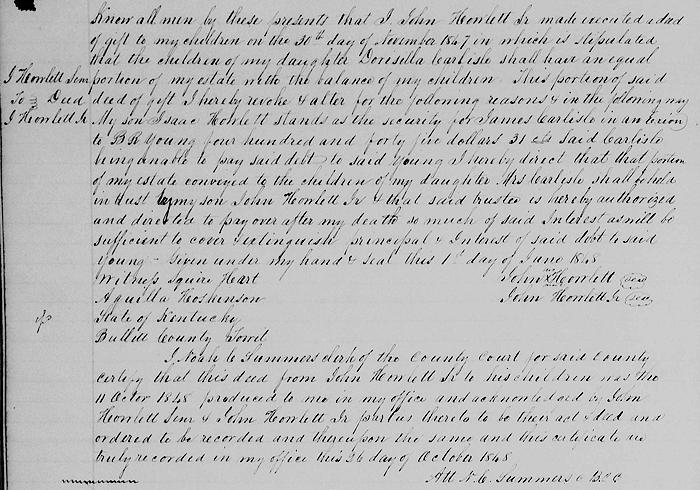 Know all men by these presents that I, John Howlett Sr made executed a deed
of gift to my children on the 30th day of November 1847 in which is stipulated
that the children of my daughter Doresella Carlisle shall have an equal
portion of my estate with the balance of my children This portion of said
deed of gift I hereby revoke & alter for the following reasons & in the following way
My son Isaac Howlett stands as the security for James Carlisle in an
to B R Young four hundred and forty five dollars 31 cts Said Carlisle
being unable to pay said debt to said Young I hereby direct that that portion
of my estate conveyed to the children of my daughter Mrs Carlisle shall be held
in trust by my son John Howlett Jr & that said trustee is hereby authorized
and directed to pay over after my death so much of said Interest as will be
sufficient to cover & extinguish principal & Interest of said debt to said
Young - Given under my hand & seal this 1st day of June 1848
Witness Squire Hart
Aquilla Hoskinson
John Howlett (seal)
John Howlett Jr (seal)
State of Kentucky
Bullitt County Towit
I Noah C Summers clerk of the County Court for said County
certify that this deed from John Howlett Sr to his children was the
11 Octor 1848 produced to me in my office and acknowledged by John
Howlett Senr & John Howlett Jr parties thereto to be their act & deed and
ordered to be recorded and thereupon the same and this certificate are
truly recorded in my office this 26 day of October 1848
Att N. C. Summers c B.C.C
J Howlett Senr
To Deed
J Howlett Jr